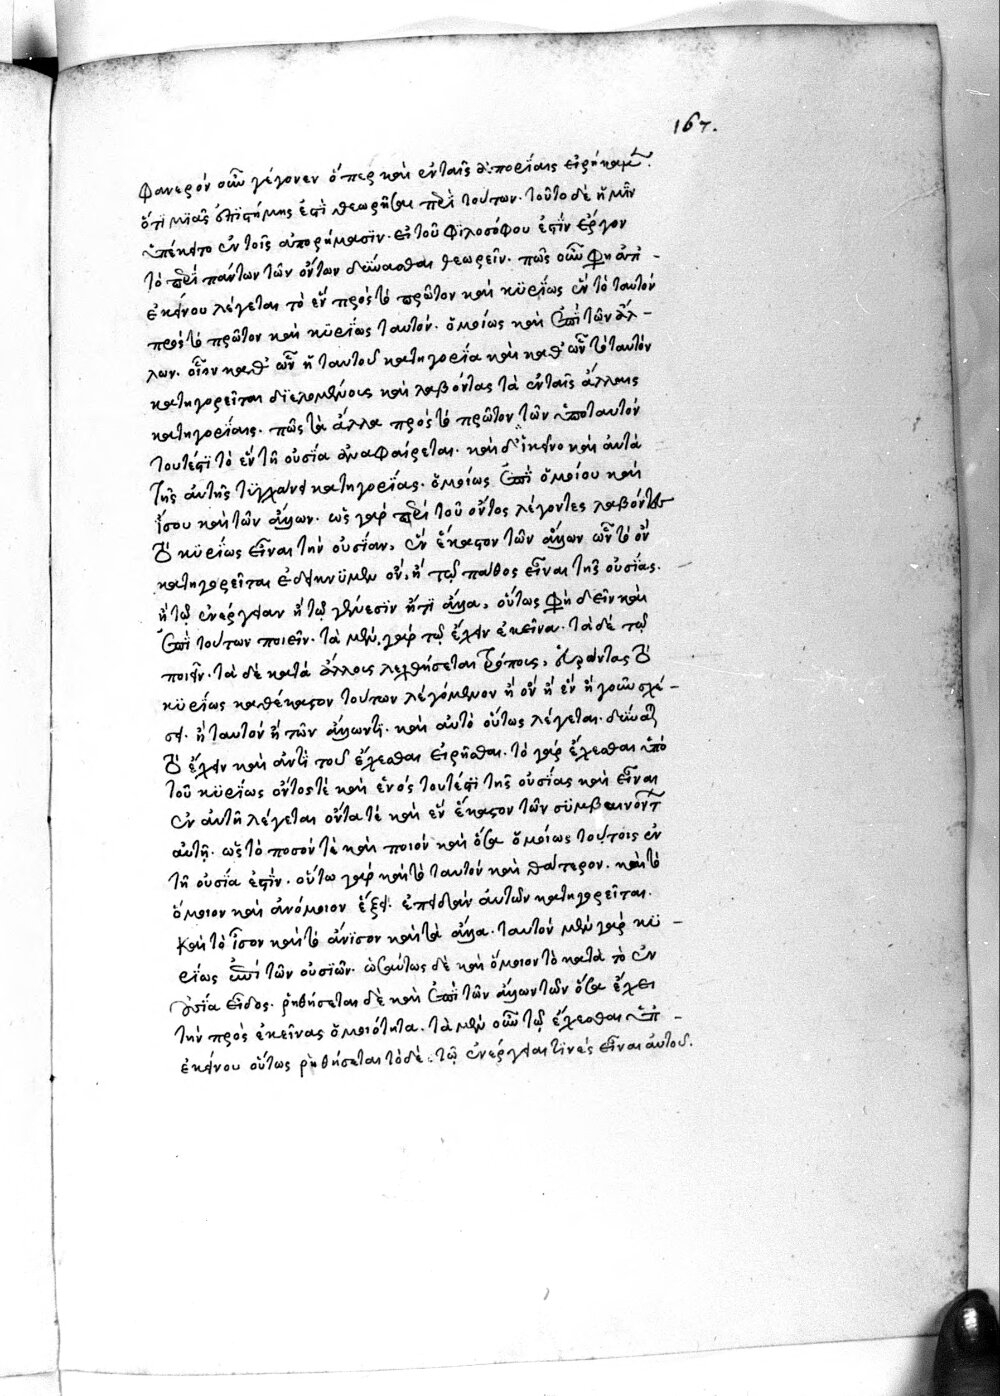 167.
φανερόν οὖν γέγονεν ὅπερ καὶ ἐν ταῖς ἀπορίαις εἰρήκαμεν.
ὅτι μιᾶς ἐπιστήμης ἐστὶ θεωρῆσαι περὶ τούτων. τοῦτο δὲ ἡμῖν
ὑπέκειτο ἐν τοῖς ἀπορήμασιν. εἰ τοῦ φιλοσόφου ἐστὶν ἔργον
τὸ περὶ πάντων τῶν ὄντων δύνασθαι θεωρεῖν. πῶς οὖν φη ἀπ -
ἐκείνου λέγεται τὸ ἓν πρὸς τὸ πρῶτον καὶ κυρίως ἓν τὸ ταυτὸν
πρὸς τὸ πρῶτον καὶ κυρίως ταυτόν. ὁμοίως καὶ ἐπὶ τῶν ἄλ -
λων. οἷον καθ' ὧν ἡ ταυτοῦ κατηγορία καὶ καθ' ὧν τὸ ταυτὸν
κατηγορεῖται διελομένους καὶ λαβόντας τὰ ἐν ταῖς ἄλλαις
κατηγορίαις. πῶς τὰ ἄλλα πρὸς τὸ πρῶτον τῶν ὑπὸ ταυτὸν
τουτέστι τὸ ἐν τῇ οὐσία ἀναφαίρεται. καὶ δ' ἐκεῖνο καὶ αὐτὰ
τῆς αὐτῆς τυγχάνει κατηγορίας. ὁμοίως ἐπὶ ὁμοίου καὶ
ἴσου καὶ τῶν ἄλλων. ὡς γὰρ περὶ τοῦ ὄντος λέγοντες λαβόντες
τὸ κυρίως εἶναι τὴν οὐσίαν, ἓν ἕκαστον τῶν ἄλλων ὧν τὸ ὂν
κατηγορεῖται ἐδείκνυμεν ὄν, ἢ τῷ πάθος εἶναι τῆς οὐσίας.
ἢ τῷ ἐνέργειαν ἢ τῷ γένεσιν ἤ τι ἄλλα, οὕτως φη δεῖν καὶ
ἐπὶ τούτων ποιεῖν. τὰ μὲν, γὰρ τῷ ἔχειν ἐκεῖνα. τὰ δὲ τῷ
ποιεῖν. τὰ δὲ κατὰ ἄλλους λεχθήσεται τρόπους,
κυρίως καθ' ἕκαστον τούτων λεγόμενον ἢ ὂν ἢ ἓν ἤγουν σχέ -
σει. ἢ ταυτόν ἢ τῶν ἄλλων τι. καὶ αὐτὸ οὕτως λέγεται. δύναται
τὸ ἔχειν καὶ ἀντὶ τοῦ ἔχεσθαι εἰρῆσθαι. τὸ γὰρ ἔχεσθαι ὑπὸ
τοῦ κυρίως ὄντος τὲ καὶ ἑνός τουτέστι τῆς οὐσίας καὶ εἶναι
ἐν αὐτῆ λέγεται ὄντα τέ καὶ ἓν ἕκαστον τῶν συμβαινόντων
αὐτῇ. ὡς τὸ ποσόν τὲ καὶ ποιόν καὶ ὅσα ὁμοίως τούτοις ἐν
τῇ οὐσία ἐστίν. οὕτω γὰρ καὶ τὸ ταυτόν καὶ θάτερον. καὶ τὸ
ὅμοιον καὶ ἀνόμοιον ἕξει. ἐπειδὰν αὐτῶν κατηγορεῖται.
καὶ τὸ ἴσον καὶ τὸ ἄνισον καὶ τὰ ἄλλα. ταυτόν μὲν γὰρ κυ -
ρίως ἐπὶ τῶν οὐσιῶν. ὡσαύτως δὲ καὶ ὅμοιον τὸ κατὰ τὸ ἐν
οὐσία εἶδος. ῥηθήσεται δὲ καὶ ἐπὶ τῶν ἄλλων τῶν ὅσα ἔχει
τὴν πρὸς ἐκεῖνας ὁμοιότητα. τὰ μὲν οὖν τῷ ἔχεσθαι ὑπ -
ἐκείνου οὕτως ῥηθήσεται τὸ δὲ τῷ ἐνέργειαί τινές εἶναι αὐτοῦ.